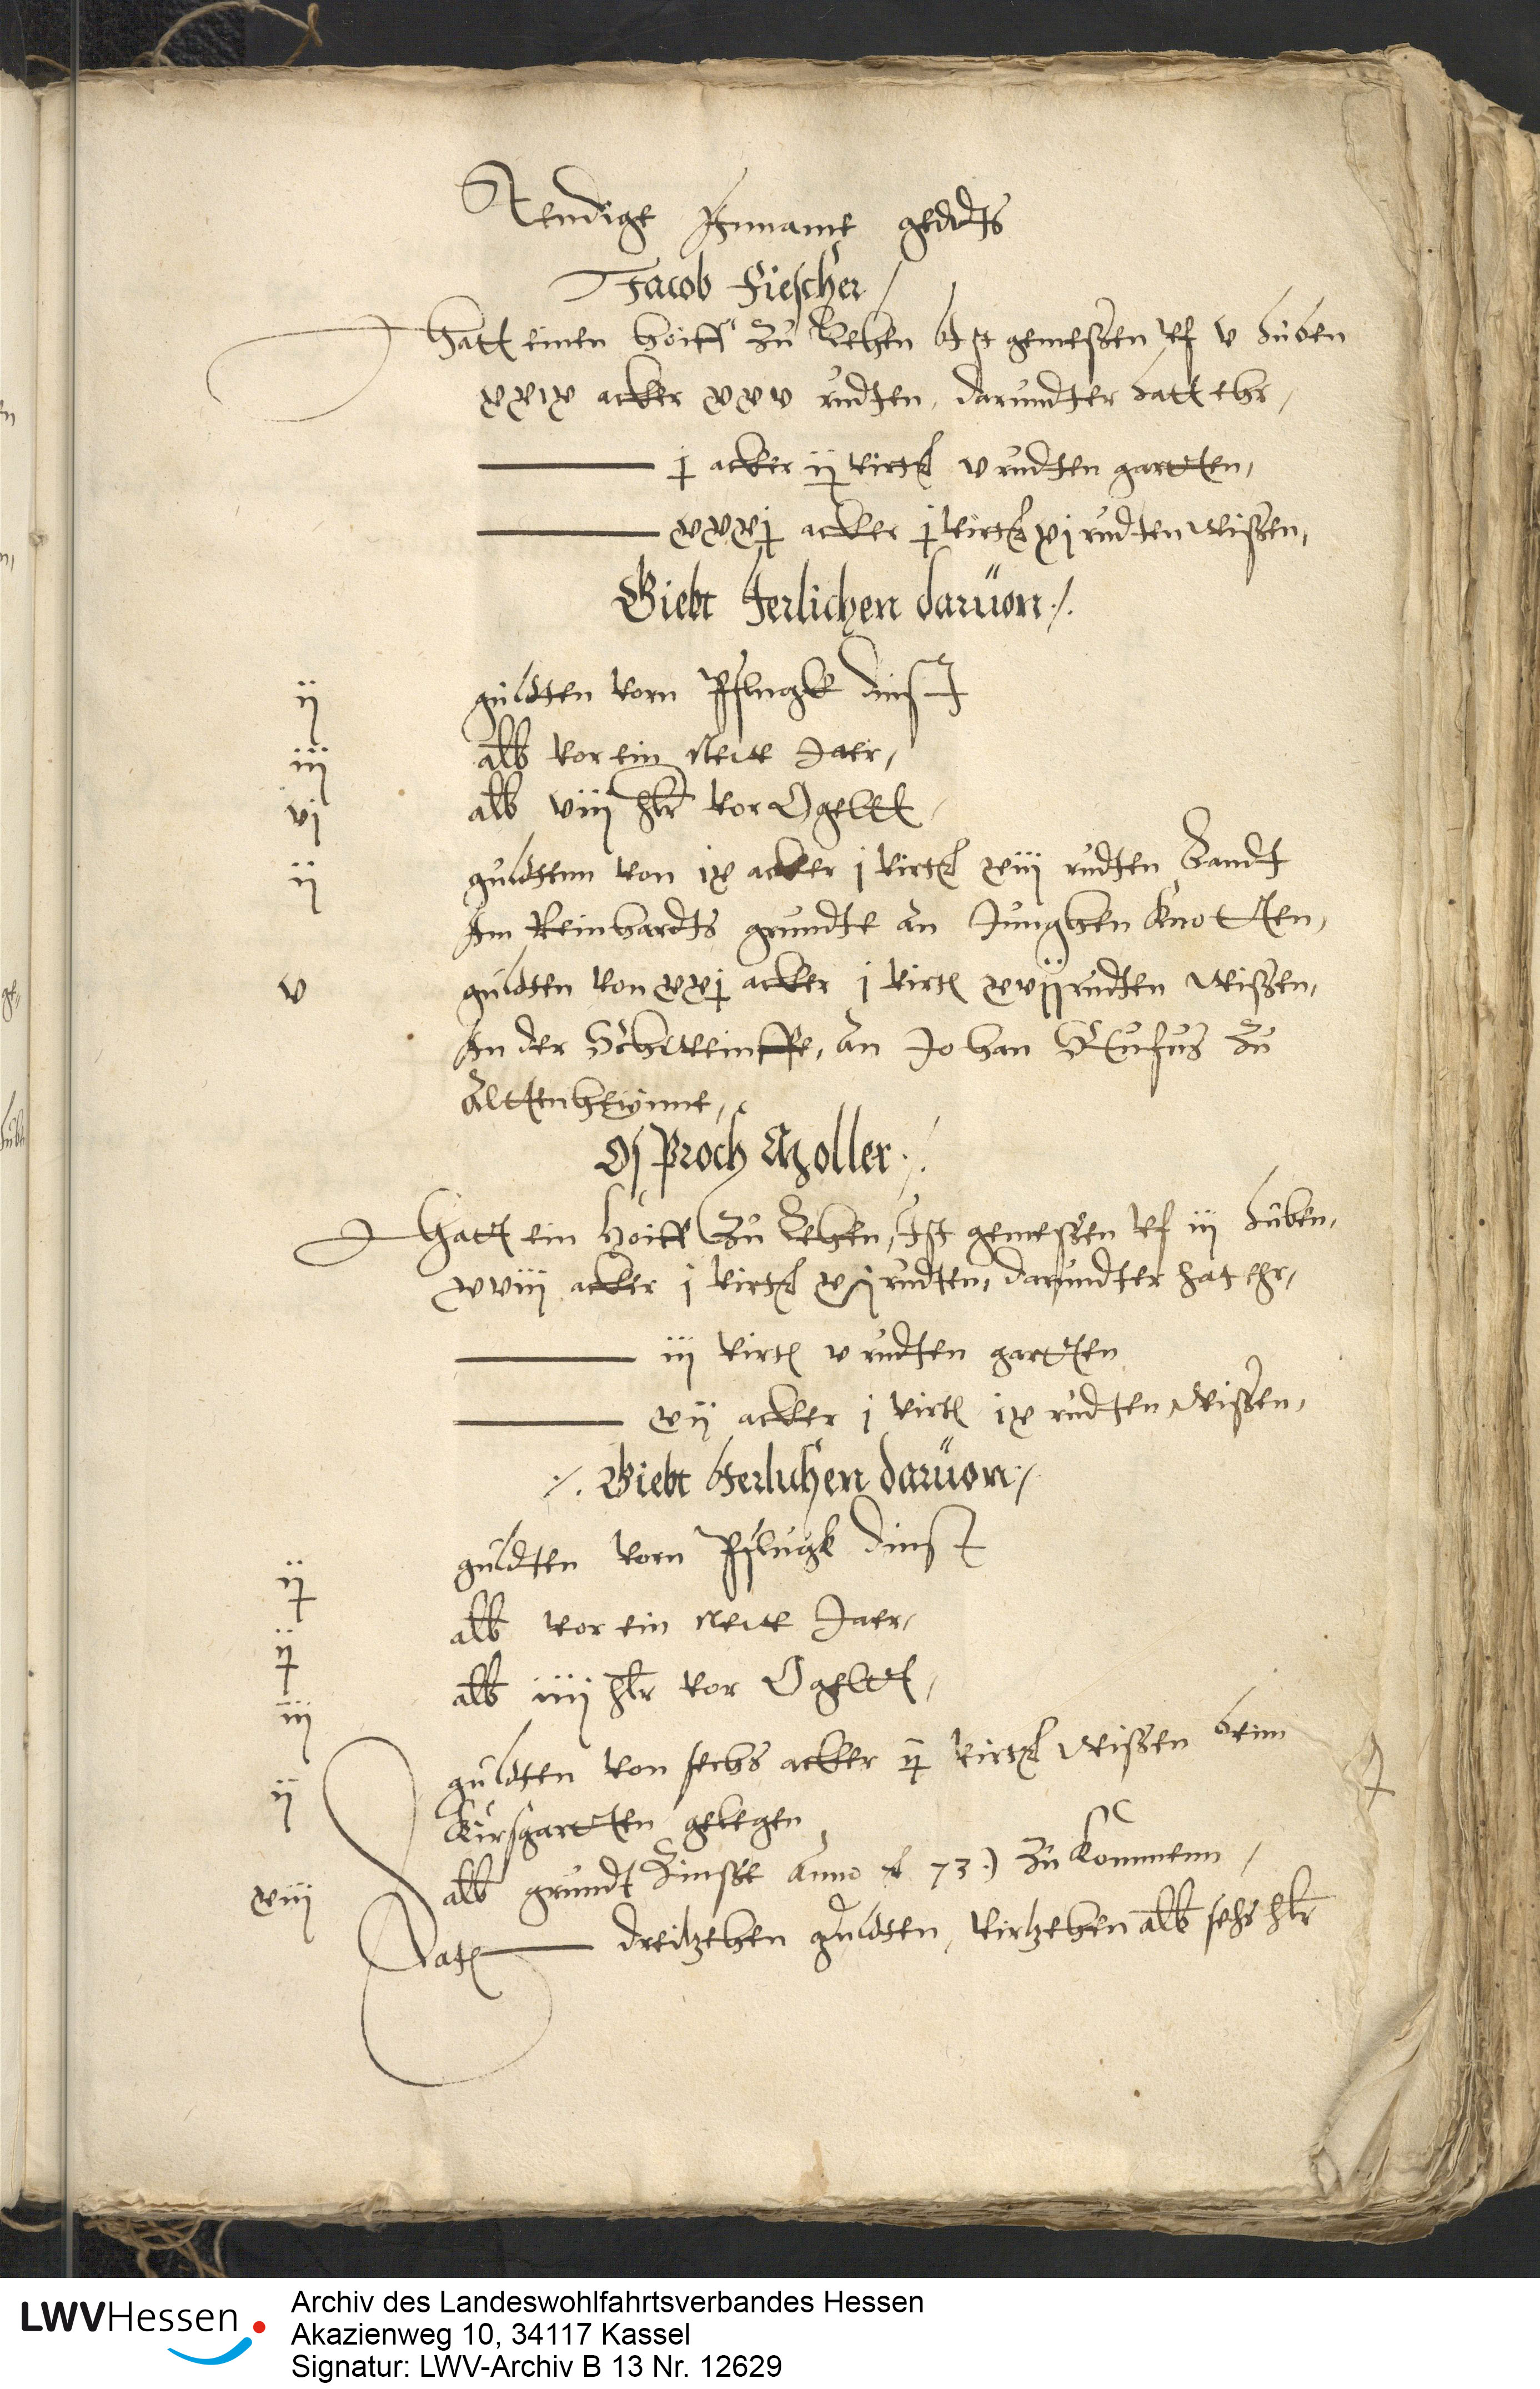 Stendige Innamt geldts
Jacob Fiescher /
Hatt einen hoiff zu Lehen Ist gemeßen uf v huben
xxix acker xxv rudten, darundter hatt ehr,
j acker ij virtel v rudten gartten,
xxxj acker j virtel xj rudten wissen,
Giebt Jerlichen daruon ./.
ij güldten vorn Pflugk dinst
iij alb vor ein Neue Jaer,
vj alb viij hlr vor Ogeltt,
ij güldtenn von ix acker j virtel xiij rudten Landt
Im Reinhardts grundte an Junghen Knotten,
v güldten von xxj acker j virtel rudten wissen,
In der an Johan zu
Altenheyme,
Moller ./.
Hatt ein hoiff zu Lehen, Ist gemeßen uf iij huben,
xviij acker j virtel xj rudten, darundter hat ehr,
iij virtel v rudten gartten
xij acker j virtel ix rudten wissen,
./. Giebt Jerlichen daruon ./.
ij güldten vorn Pflugk dinst
ij alb vor ein Neue Jaer,
iij alb iiij hlr vor Ogeltt,
ij güldten von sechs acker ij virtel wissen beim
Kirsgartten gelegen
xiij alb grundt Zinsse Anno 73 .) zu kommenn,
Lats dreitzehen güldten, virtzehen alb sechs hlr
LWVHessen
Archiv des Landeswohlfahrtsverbandes Hessen
Akazienweg 10, 34117 Kassel
Signatur: LWV-Archiv B 13 Nr. 12629